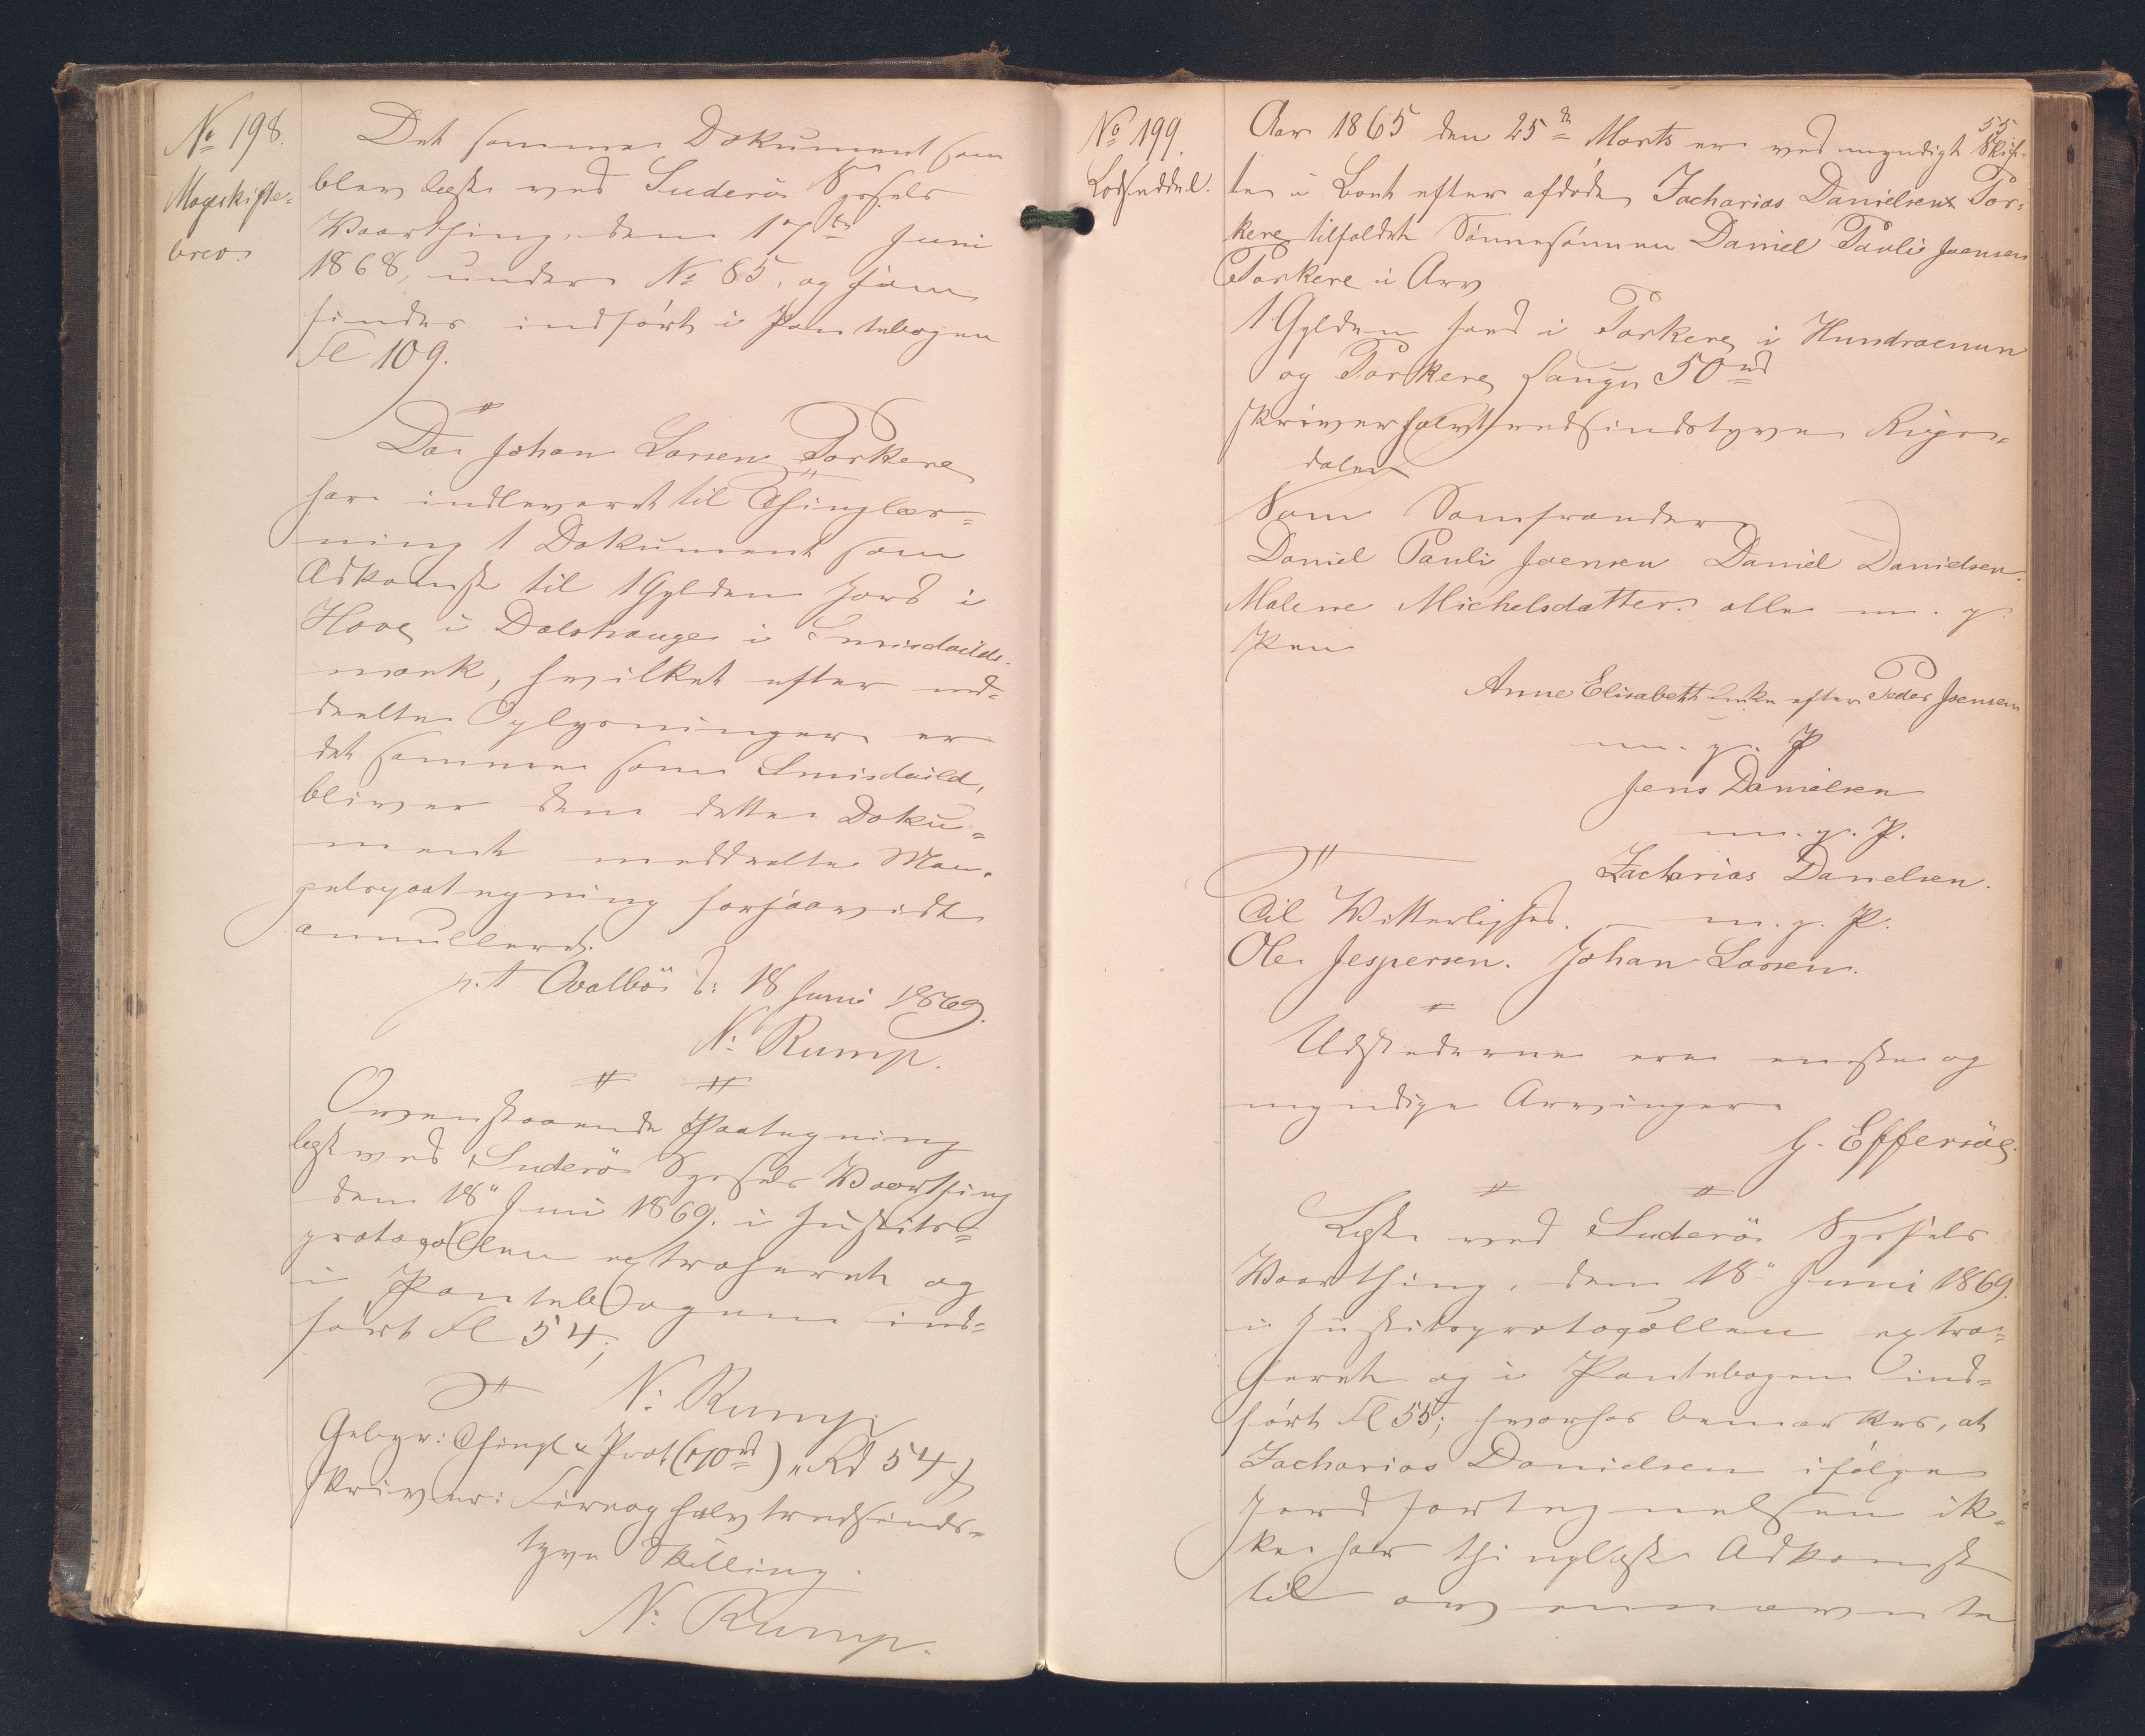 No 198.
Mageskifte-
brev.
Det samme Dokument som
blev læst ved Suderö Syssels
Vaarthing, den 17de Juni
1868, under No 85, og som
findes indført i Pantebogen
Fl 109.
Da Johan Larsen Porkere
har indleveret til Thinglæs-
ning 1 Dokument som
Adkomst til 1 Gylden Jord i
Hove i Dalshauge i
mark, hvilket efter med-
deelte Oplysninger er
det samme som
bliver den dette Doku-
ment meddeelte Man-
gelspaategning forsaavidt
annulleret.
p.t Qvalbö d: 18 Juni 1869.
N: Rump.
Ovenstaaende Paategning
læst ved Suderö Syssels Vaarthing
den 18" Juni 1869. i Justits-
protocollen extraheret og
i Pantebogen ind-
ført Fl 54;
N: Rump
Gebyr: Thingl & Prot "Rd 54 ß
skriver: Fireoghalvtredsinds-
tyve Skilling.
N: Rump.
55
No 199.
Lodseddel.
Aar 1865 den 25de Marts er ved myndigt Skif-
te i Boet efter afdöde Zacharias Danielsen Por-
kere tilfaldet Sönnesönnen Daniel Pauli Joensen
Porkere i Arv
1 Gylden Jord i Porkere i Hundraenum
og Porkere Hauge 50 rd
skriver halvtredsindstyve Rigs-
daler
Som Samfrænder
Daniel Pauli Joensen Daniel Danielsen
Malene Michelsdatter. alle m. p.
Pen
Anne Elisabeth Enke efter Peder Joensen
m. p. P
Jens Danielsen
m. p. P.
Zacharias Danelsen.
Til Vitterlighed. m. p. P.
Ole Jespersen. Johan Larsen.
Udstederne ere eneste og
myndige Arvinger
H. Effersöe.
Læst ved Suderö Syssels
Vaarthing, den 18" Juni 1869.
i Justitsprotocollen extra-
heret og i Pantebogen ind-
fört Fl 55; hvorhos bemærkes, at
Zacharias Danielsen ifölge
Jordfortegnelsen ik-
ke har thinglæst Adkomst
til ovennævnte